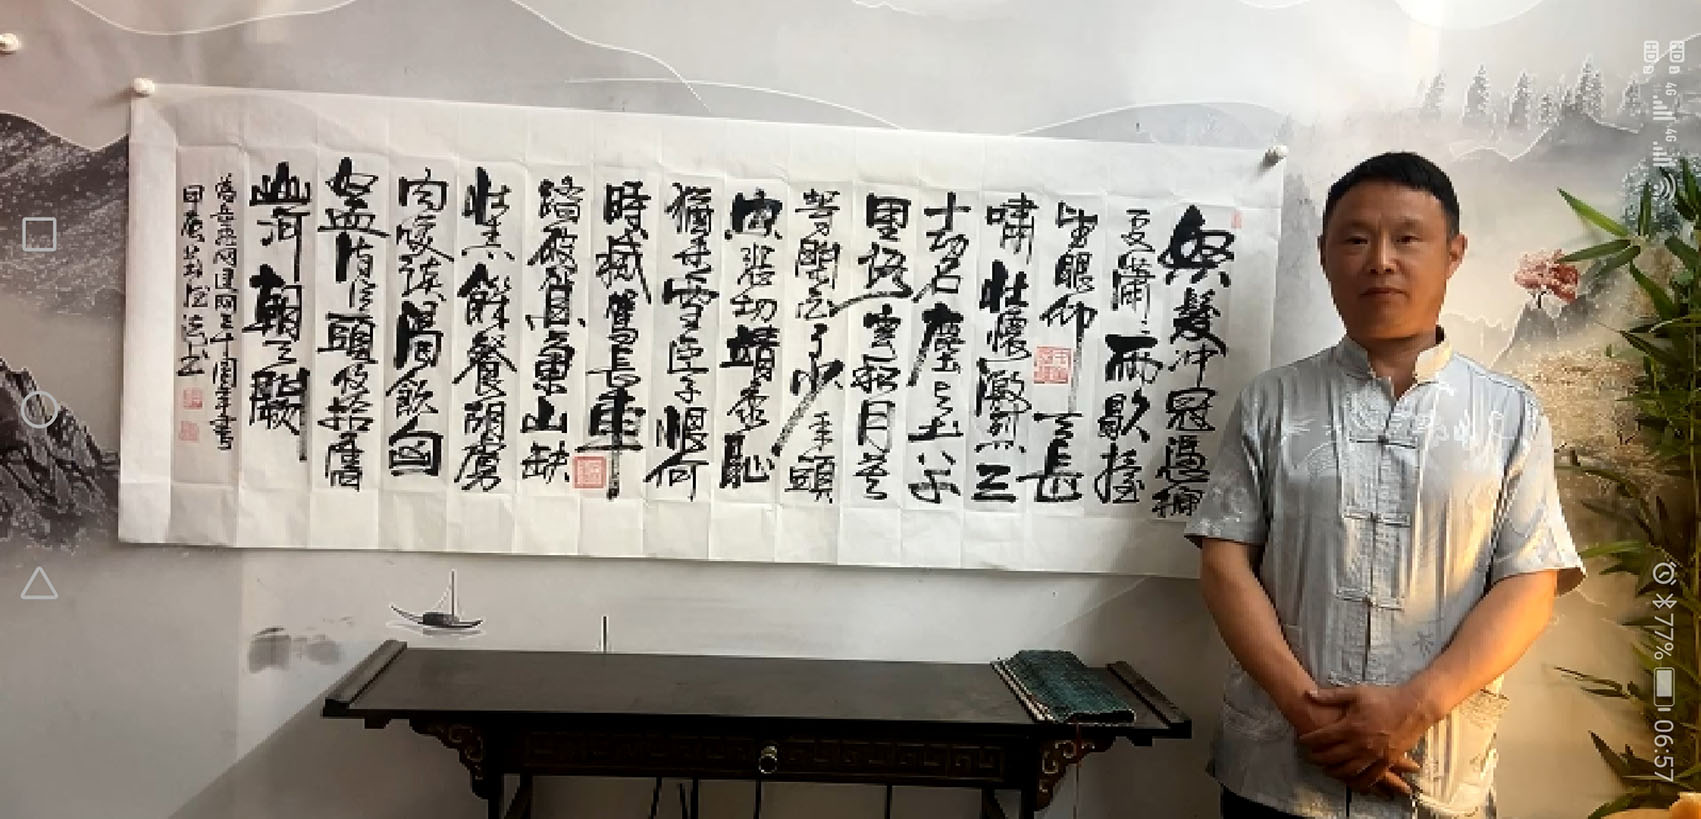 怒髮冲冠憑欄
處瀟瀟雨歇擡
望眼仰天長
嘯壯懷激烈三
十功名塵与土八千
里路雲和月莫
等閑白了少年頭
空悲切靖康恥
猶未雪臣子恨何
時滅駕長車
踏破賀蘭山缺
壯志飢餐胡虜
肉笑談渴飲匈
奴血待從頭收拾舊
山河朝天闕
HD 4G
HD 4G
77%
06:57